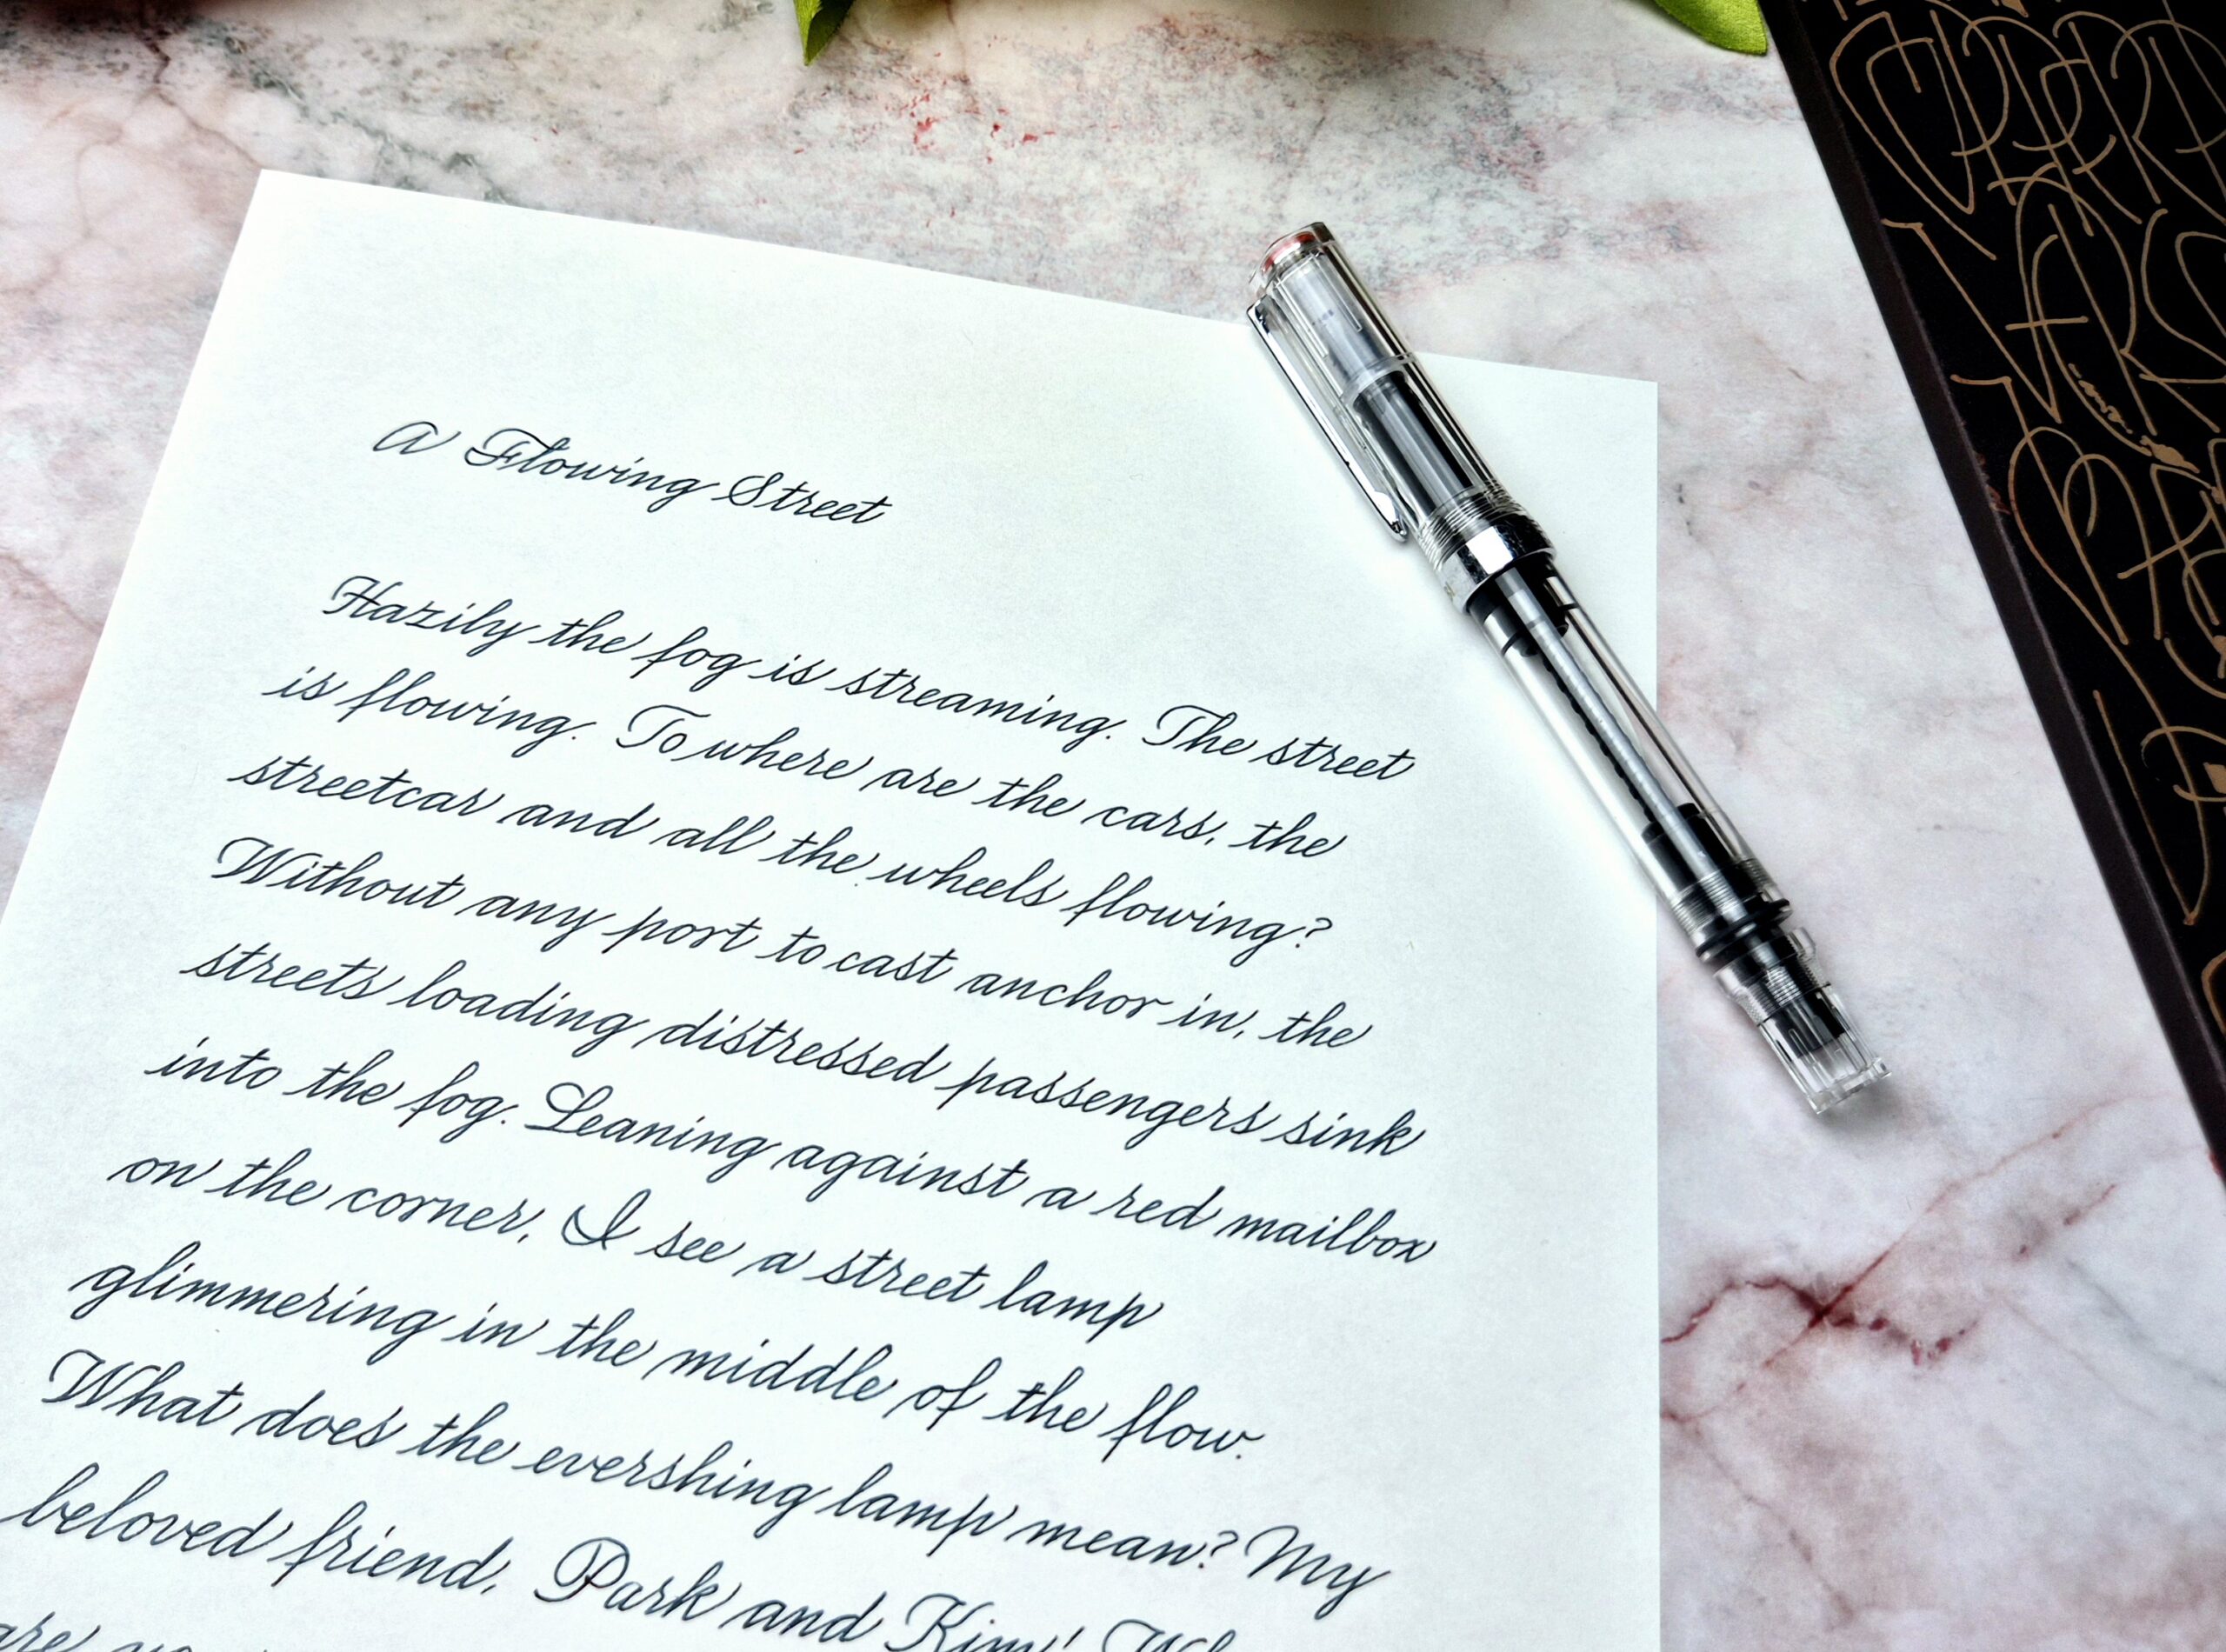 A Flowing Street
Hazily the fog is streaming. The street
is flowing. To where are the cars, the
streetcar and all the wheels flowing?
Without any port to cast anchor in, the
streets loading distressed passengers sink
into the fog. Leaning against a red mailbox
on the corner, I see a street lamp
glimmering in the middle of the flow.
What does the evershing lamp mean? My
beloved friend, Park and Kim!